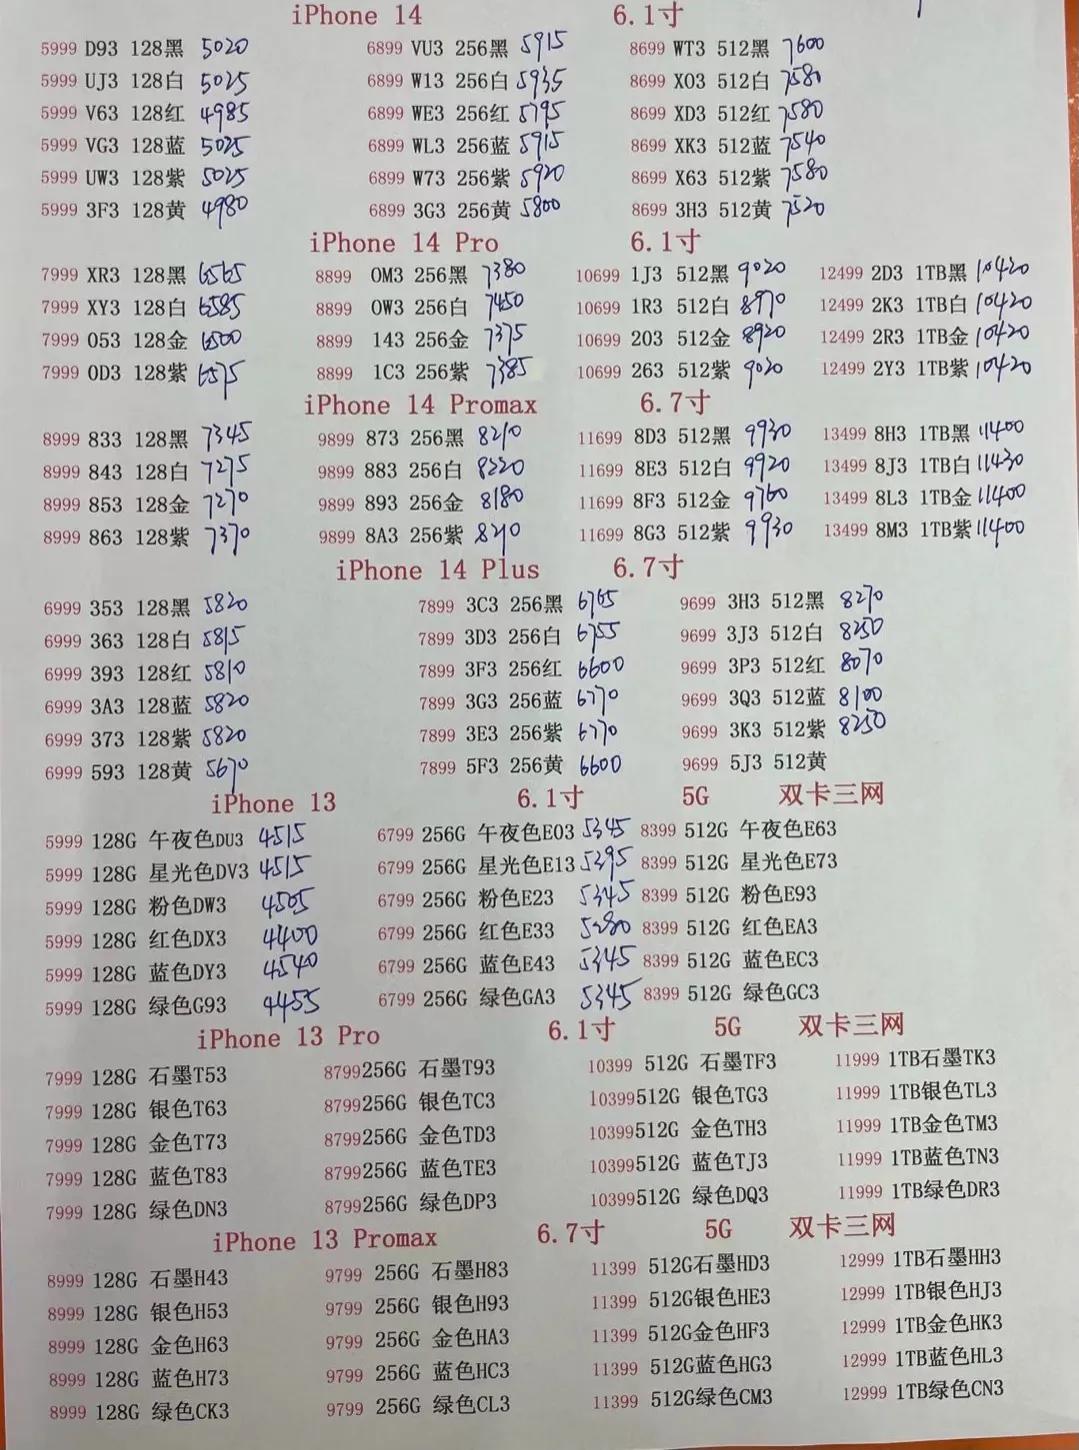 iPhone 14 6.1寸
5999 D93 128黑 5020 6899 VU3 256黑 5915 8699 WT3 512黑 7600
5999 UJ3 128白 5025 6899 W13 256白 5935 8699 XO3 512白 7580
5999 V63 128红 4985 6899 WE3 256红 5795 8699 XD3 512红 7580
5999 VG3 128蓝 5025 6899 WL3 256蓝 5915 8699 XK3 512蓝 7540
5999 UW3 128紫 5025 6899 W73 256紫 5920 8699 X63 512紫 7580
5999 3F3 128黄 4980 6899 3G3 256黄 5800 8699 3H3 512黄 7520
iPhone 14 Pro 6.1寸
7999 XR3 128黑 6565 8899 OM3 256黑 7380 10699 1J3 512黑 9020 12499 2D3 1TB黑 10420
7999 XY3 128白 6585 8899 OW3 256白 7450 10699 1R3 512白 8970 12499 2K3 1TB白 10420
7999 053 128金 6500 8899 143 256金 7375 10699 203 512金 8920 12499 2R3 1TB金 10420
7999 0D3 128紫 6575 8899 1C3 256紫 7385 10699 263 512紫 9020 12499 2Y3 1TB紫 10420
iPhone 14 Promax 6.7寸
8999 833 128黑 7345 9899 873 256黑 8210 11699 8D3 512黑 9930 13499 8H3 1TB黑 11400
8999 843 128白 7275 9899 883 256白 8220 11699 8E3 512白 9920 13499 8J3 1TB白 11430
8999 853 128金 7270 9899 893 256金 8180 11699 8F3 512金 9760 13499 8L3 1TB金 11400
8999 863 128紫 7370 9899 8A3 256紫 8290 11699 8G3 512紫 9930 13499 8M3 1TB紫 11400
iPhone 14 Plus 6.7寸
6999 353 128黑 5820 7899 3C3 256黑 6765 9699 3H3 512黑 8270
6999 363 128白 5815 7899 3D3 256白 6755 9699 3J3 512白 8250
6999 393 128红 5810 7899 3F3 256红 6600 9699 3P3 512红 8070
6999 3A3 128蓝 5820 7899 3G3 256蓝 6770 9699 3Q3 512蓝 8100
6999 373 128紫 5820 7899 3E3 256紫 6770 9699 3K3 512紫 8250
6999 593 128黄 5670 7899 5F3 256黄 6600 9699 5J3 512黄
iPhone 13 6.1寸 5G 双卡三网
5999 128G 午夜色DU3 4515 6799 256G 午夜色E03 5345 8399 512G 午夜色E63
5999 128G 星光色DV3 4515 6799 256G 星光色E13 5395 8399 512G 星光色E73
5999 128G 粉色DW3 4505 6799 256G 粉色E23 5345 8399 512G 粉色E93
5999 128G 红色DX3 4400 6799 256G 红色E33 5280 8399 512G 红色EA3
5999 128G 蓝色DY3 4540 6799 256G 蓝色E43 5345 8399 512G 蓝色EC3
5999 128G 绿色G93 4455 6799 256G 绿色GA3 5345 8399 512G 绿色GC3
iPhone 13 Pro 6.1寸 5G 双卡三网
7999 128G 石墨T53 8799 256G 石墨T93 10399 512G 石墨TF3 11999 1TB石墨TK3
7999 128G 银色T63 8799 256G 银色TC3 10399 512G 银色TG3 11999 1TB银色TL3
7999 128G 金色T73 8799 256G 金色TD3 10399 512G 金色TH3 11999 1TB金色TM3
7999 128G 蓝色T83 8799 256G 蓝色TE3 10399 512G 蓝色TJ3 11999 1TB蓝色TN3
7999 128G 绿色DN3 8799 256G 绿色DP3 10399 512G 绿色DQ3 11999 1TB绿色DR3
iPhone 13 Promax 6.7寸 5G 双卡三网
8999 128G 石墨H43 9799 256G 石墨H83 11399 512G石墨HD3 12999 1TB石墨HH3
8999 128G 银色H53 9799 256G 银色H93 11399 512G银色HE3 12999 1TB银色HJ3
8999 128G 金色H63 9799 256G 金色HA3 11399 512G金色HF3 12999 1TB金色HK3
8999 128G 蓝色H73 9799 256G 蓝色HC3 11399 512G蓝色HG3 12999 1TB蓝色HL3
8999 128G 绿色CK3 9799 256G 绿色CL3 11399 512G绿色CM3 12999 1TB绿色CN3